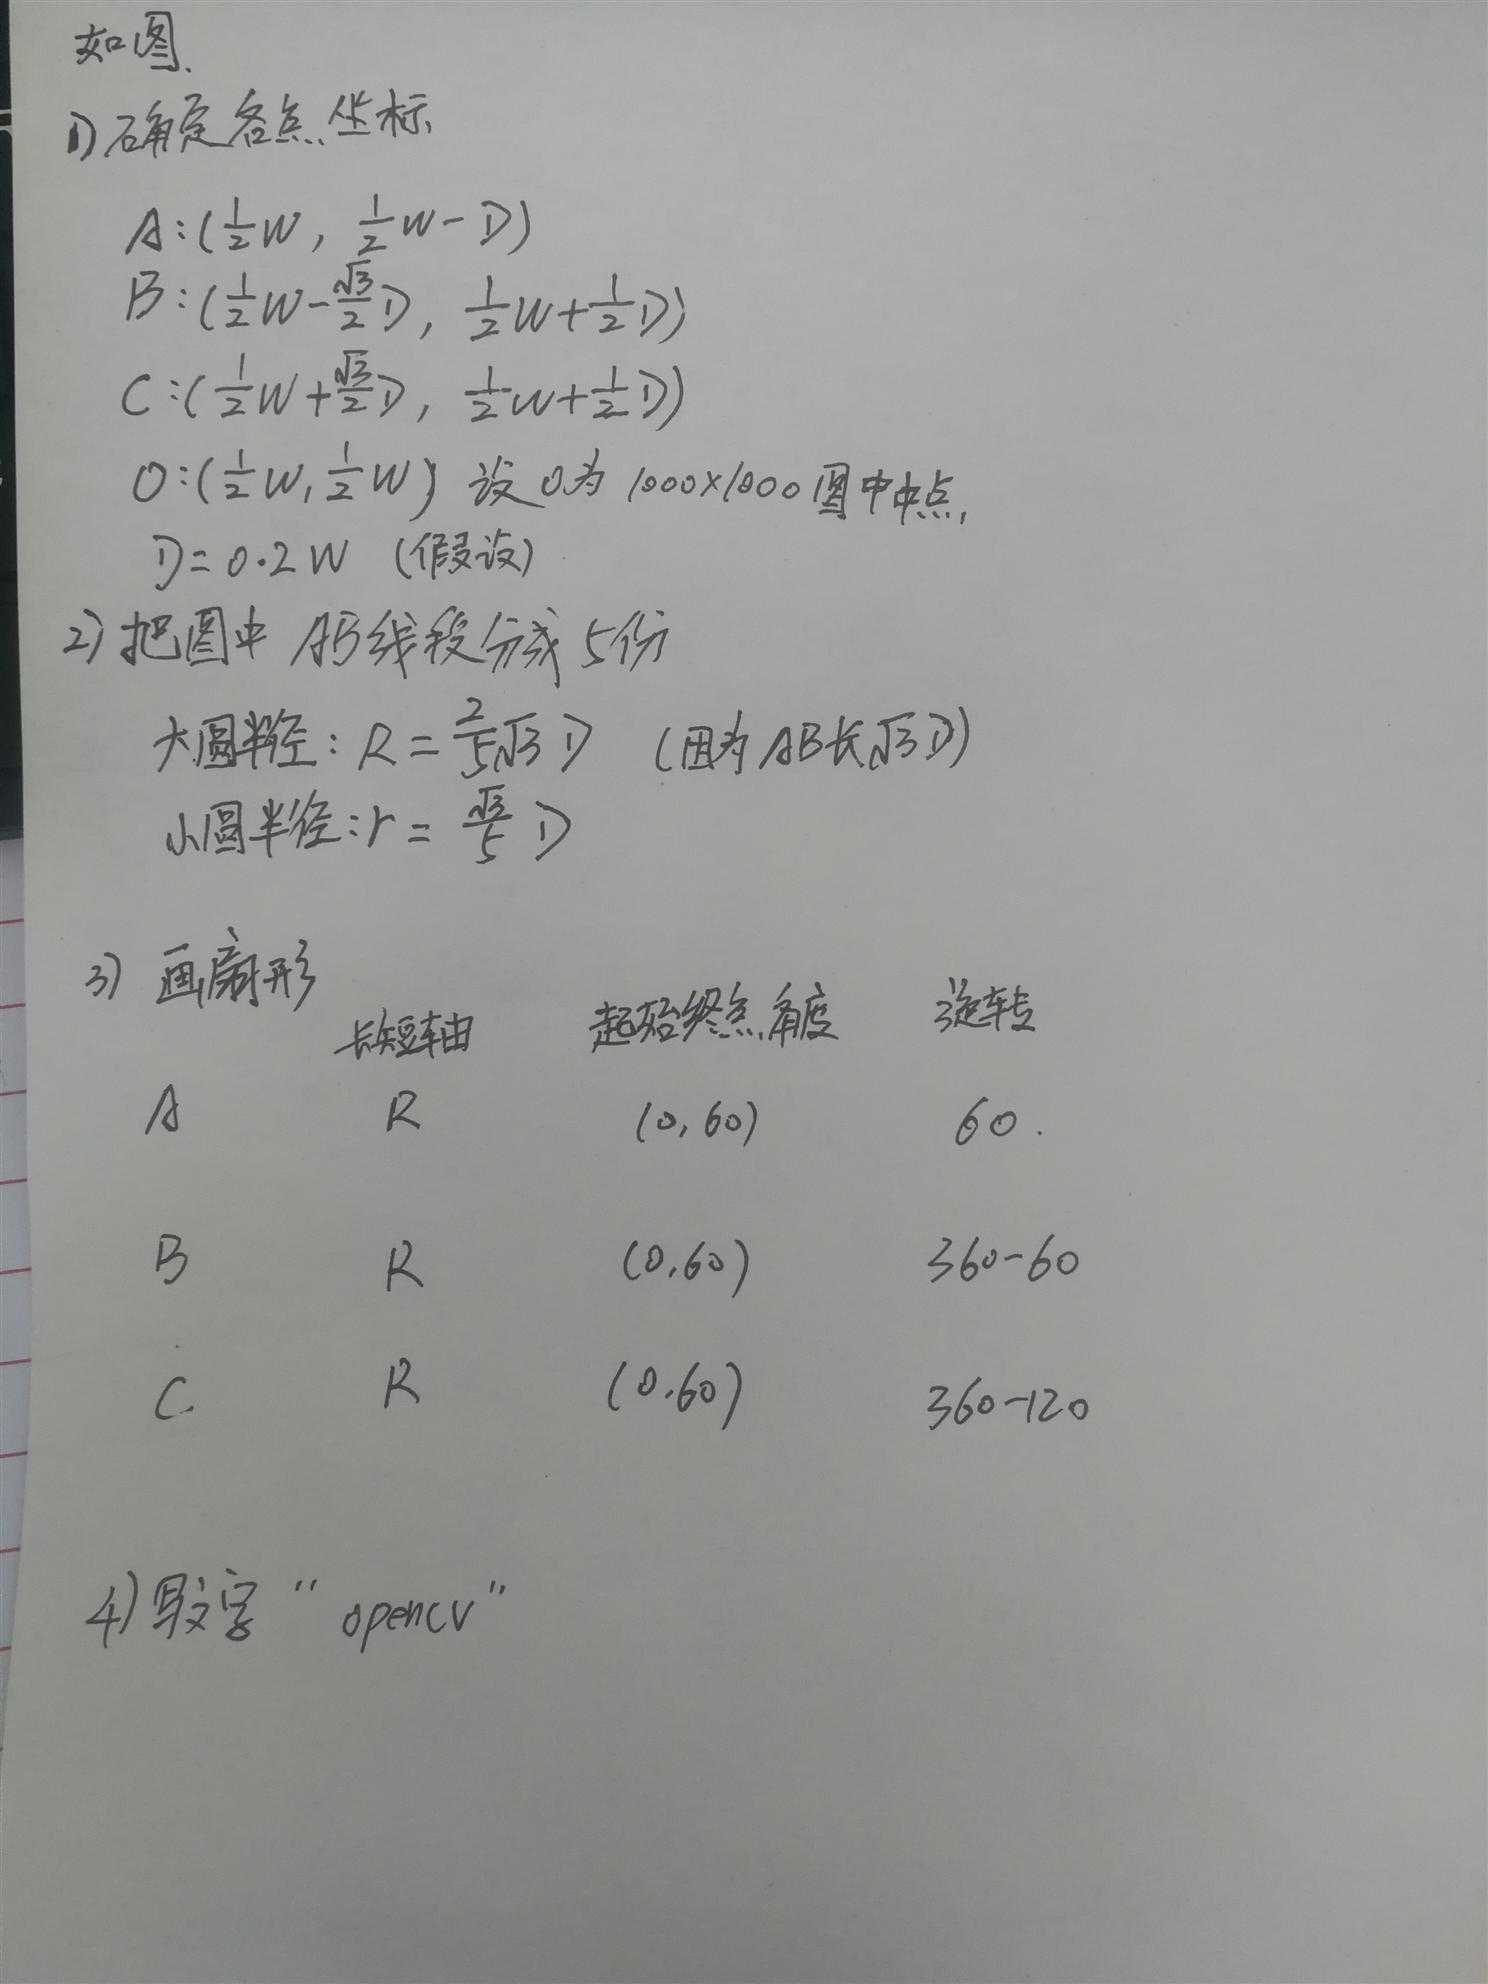 如图.
1) 确定各点坐标
A:(1/2 W, 1/2 W-D)
B:(1/2 W-√3/2 D, 1/2 W+1/2 D)
C:(1/2 W+√3/2 D, 1/2 W+1/2 D)
O:(1/2 W, 1/2 W) 设O为1000×1000图中中点,
D=0.2W (假设)
2) 把图中AB线段分成5份
大圆半径: R=2/5√3 D (因为AB长√3 D)
小圆半径: r=√3/5 D
3) 画扇形
长短轴 起始终点角度 旋转
A R (0,60) 60.
B R (0,60) 360-60
C R (0,60) 360-120
4) 写文字"opencv"